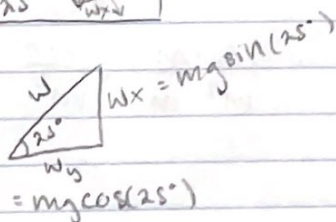 25 Wx
W Wx = mg sin(25°)
25°
Wy
= mg cos(25°)